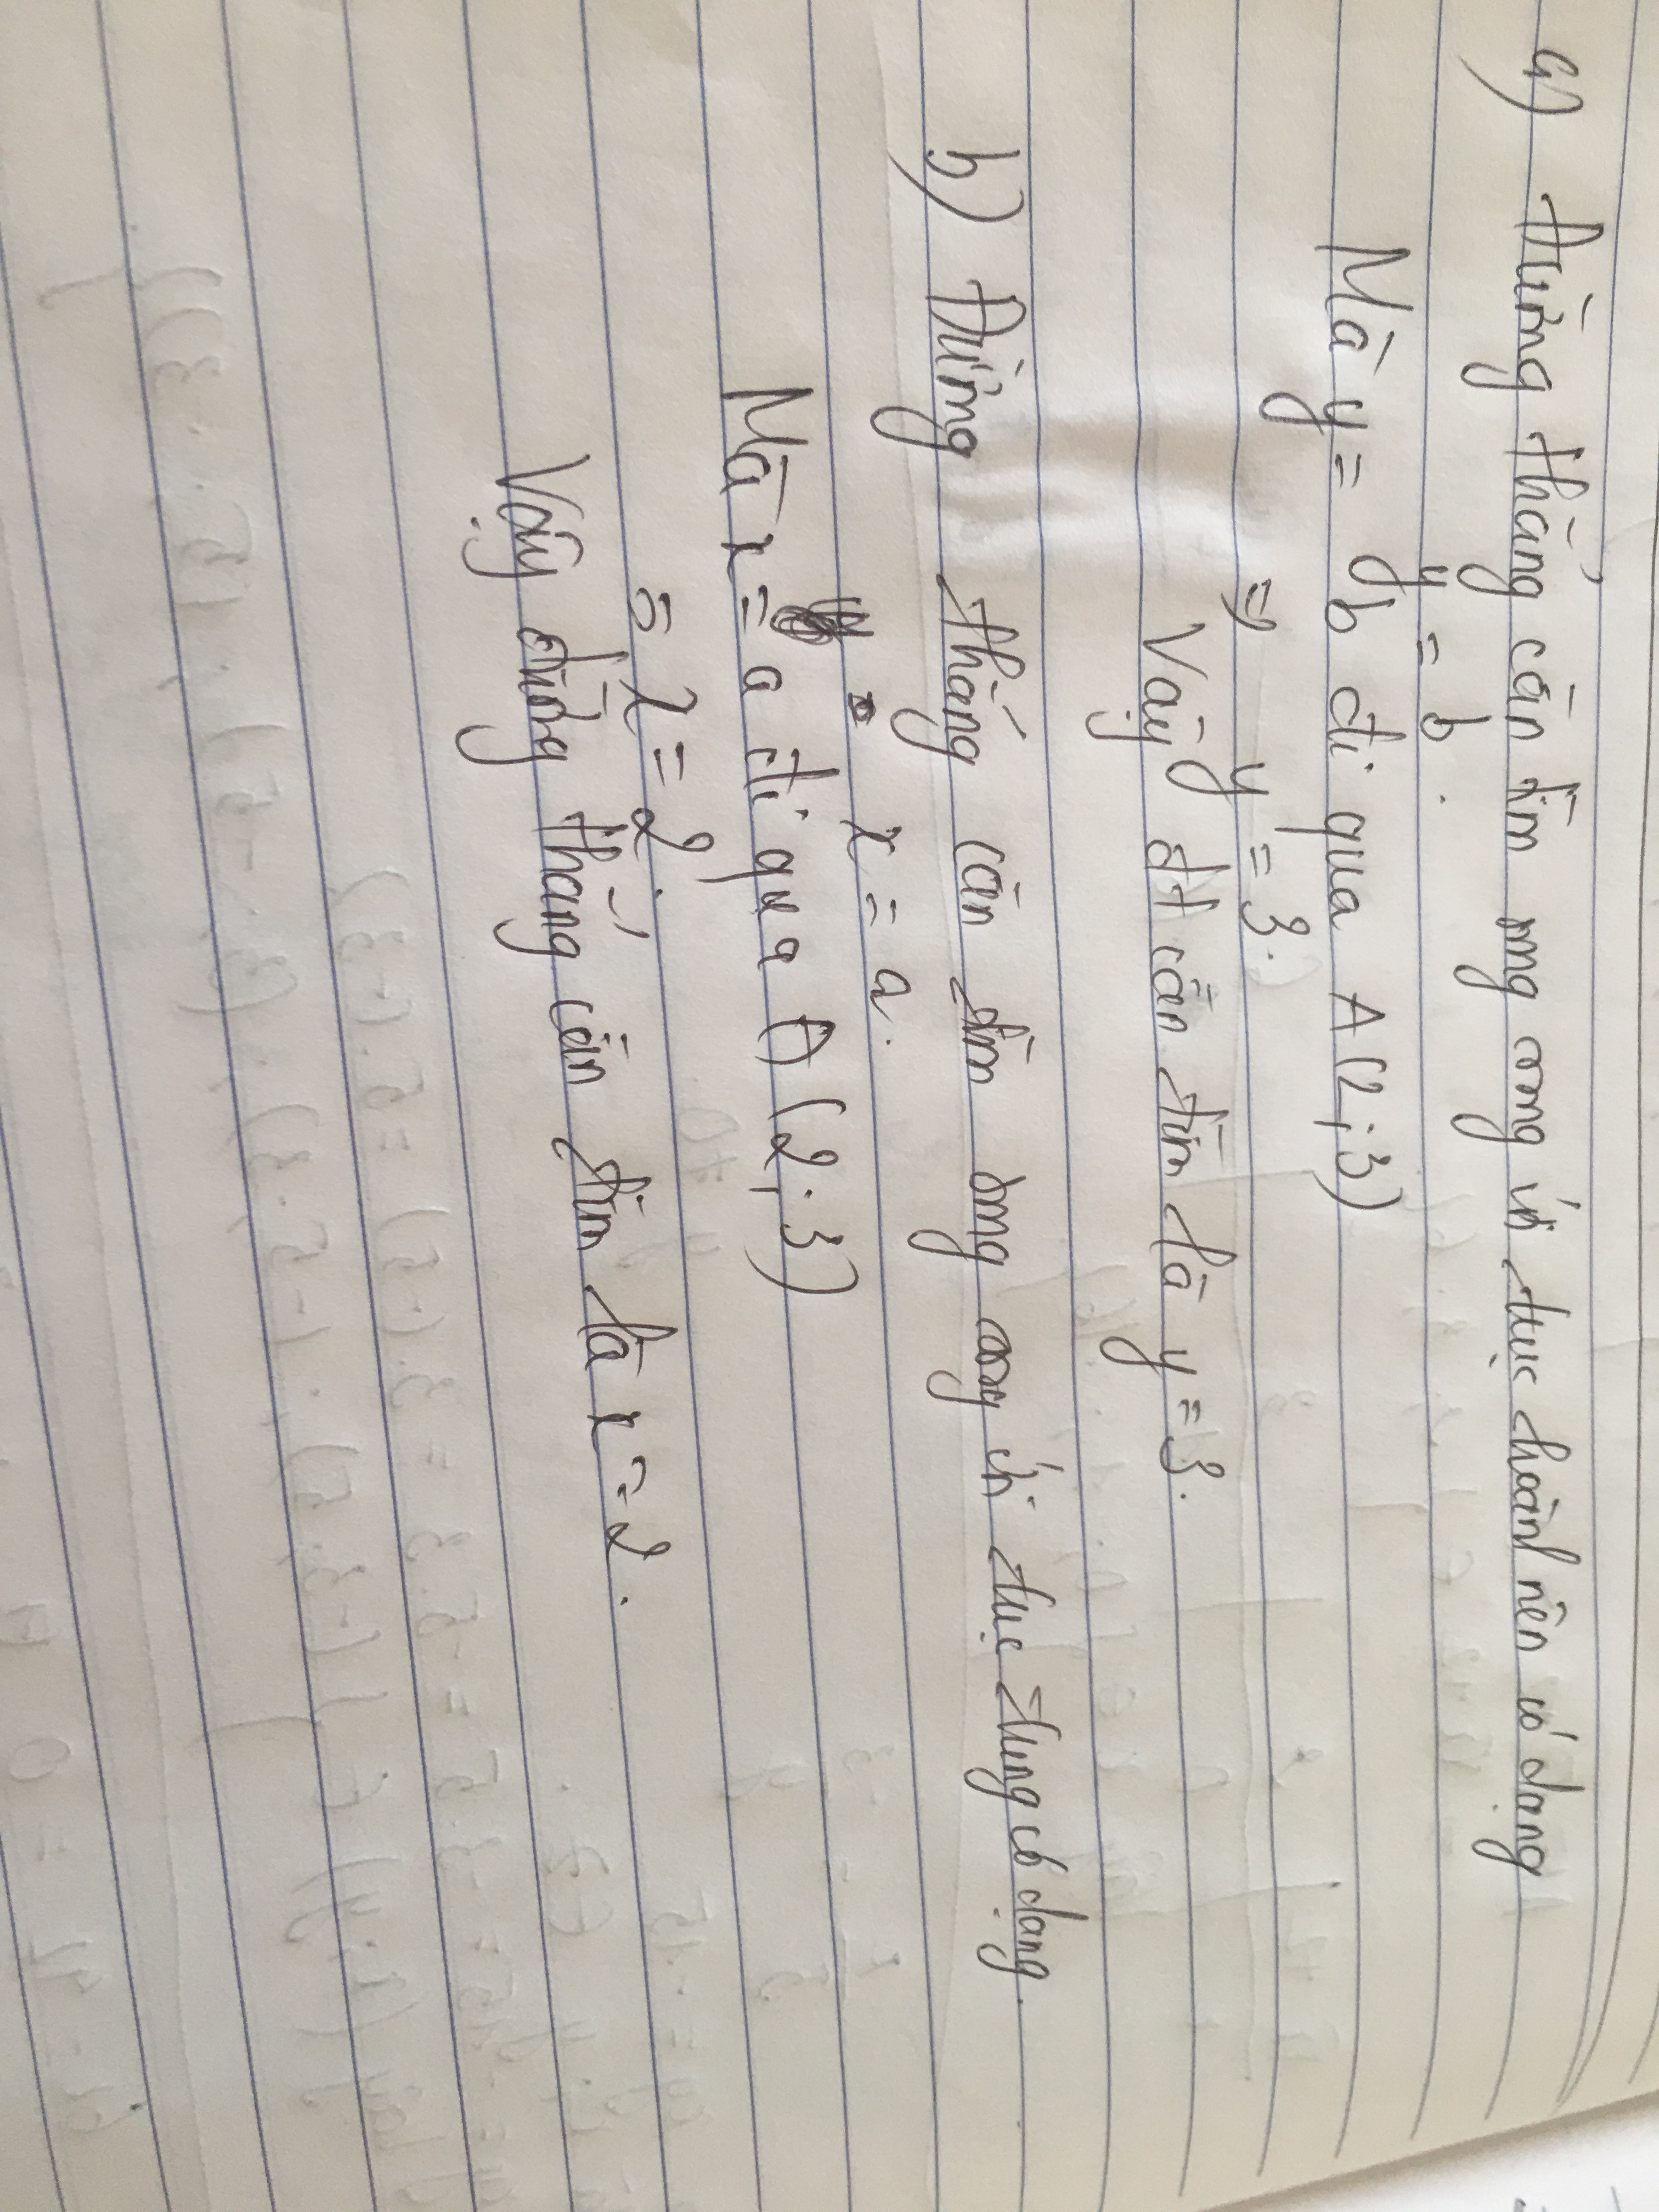 a) Đường thẳng cần tìm song song với trục hoành nên có dạng
y = b.
Mà y = b đi qua A(2;3)
=> y = 3.
Vậy đt cần tìm là y = 3.
b) Đường thẳng cần tìm song song với trục tung có dạng.
x = a.
Mà x = a đi qua A(2;3)
=> x = 2.
Vậy đường thẳng cần tìm là x = 2.